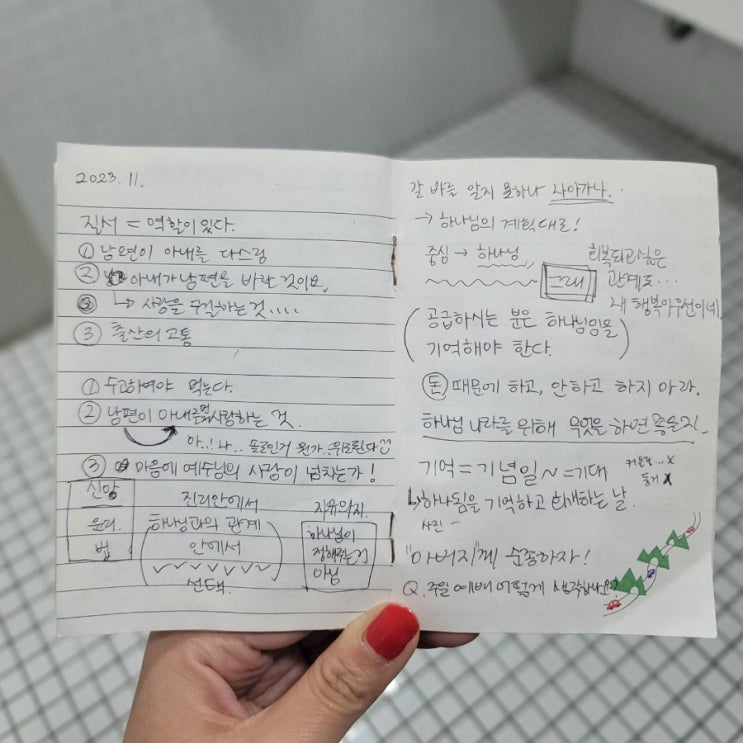 2023. 11.
질서 = 역할이 있다.
① 남편이 아내를 다스림
② 아내가 남편을 바란 것이요,
↳ 사랑을 구걸하는 것....
③ 출산의 고통
① 수고하여야 먹는다.
② 남편이 아내를 사랑하는 것.
아..! 나..
③ 마음에 예수님의 사랑이 넘치는가!
신앙
윤리.
법
진리안에서
하나님과의 관계
안에서
선택.
자유의지.
하나님이
정해주는거
아님
갈 바를 알지 못하나 나아가나..
→ 하나님의 계획대로!
중심 → 하나님
그대
회복되고싶은
관계로...
내 행복이우선이네.
(공급하시는 분은 하나님임을
기억해야 한다.)
돈 때문에 하고, 안하고 하지 마라.
하나님 나라를 위해 무엇을 하면 좋을지.
기억 = 기념일 ~ = 기대
↳ 하나됨을 기억하고 하는 날.
사진 -
"아버지"께 순종하자!
Q. 주일 예배 어떻게 생각하나요?